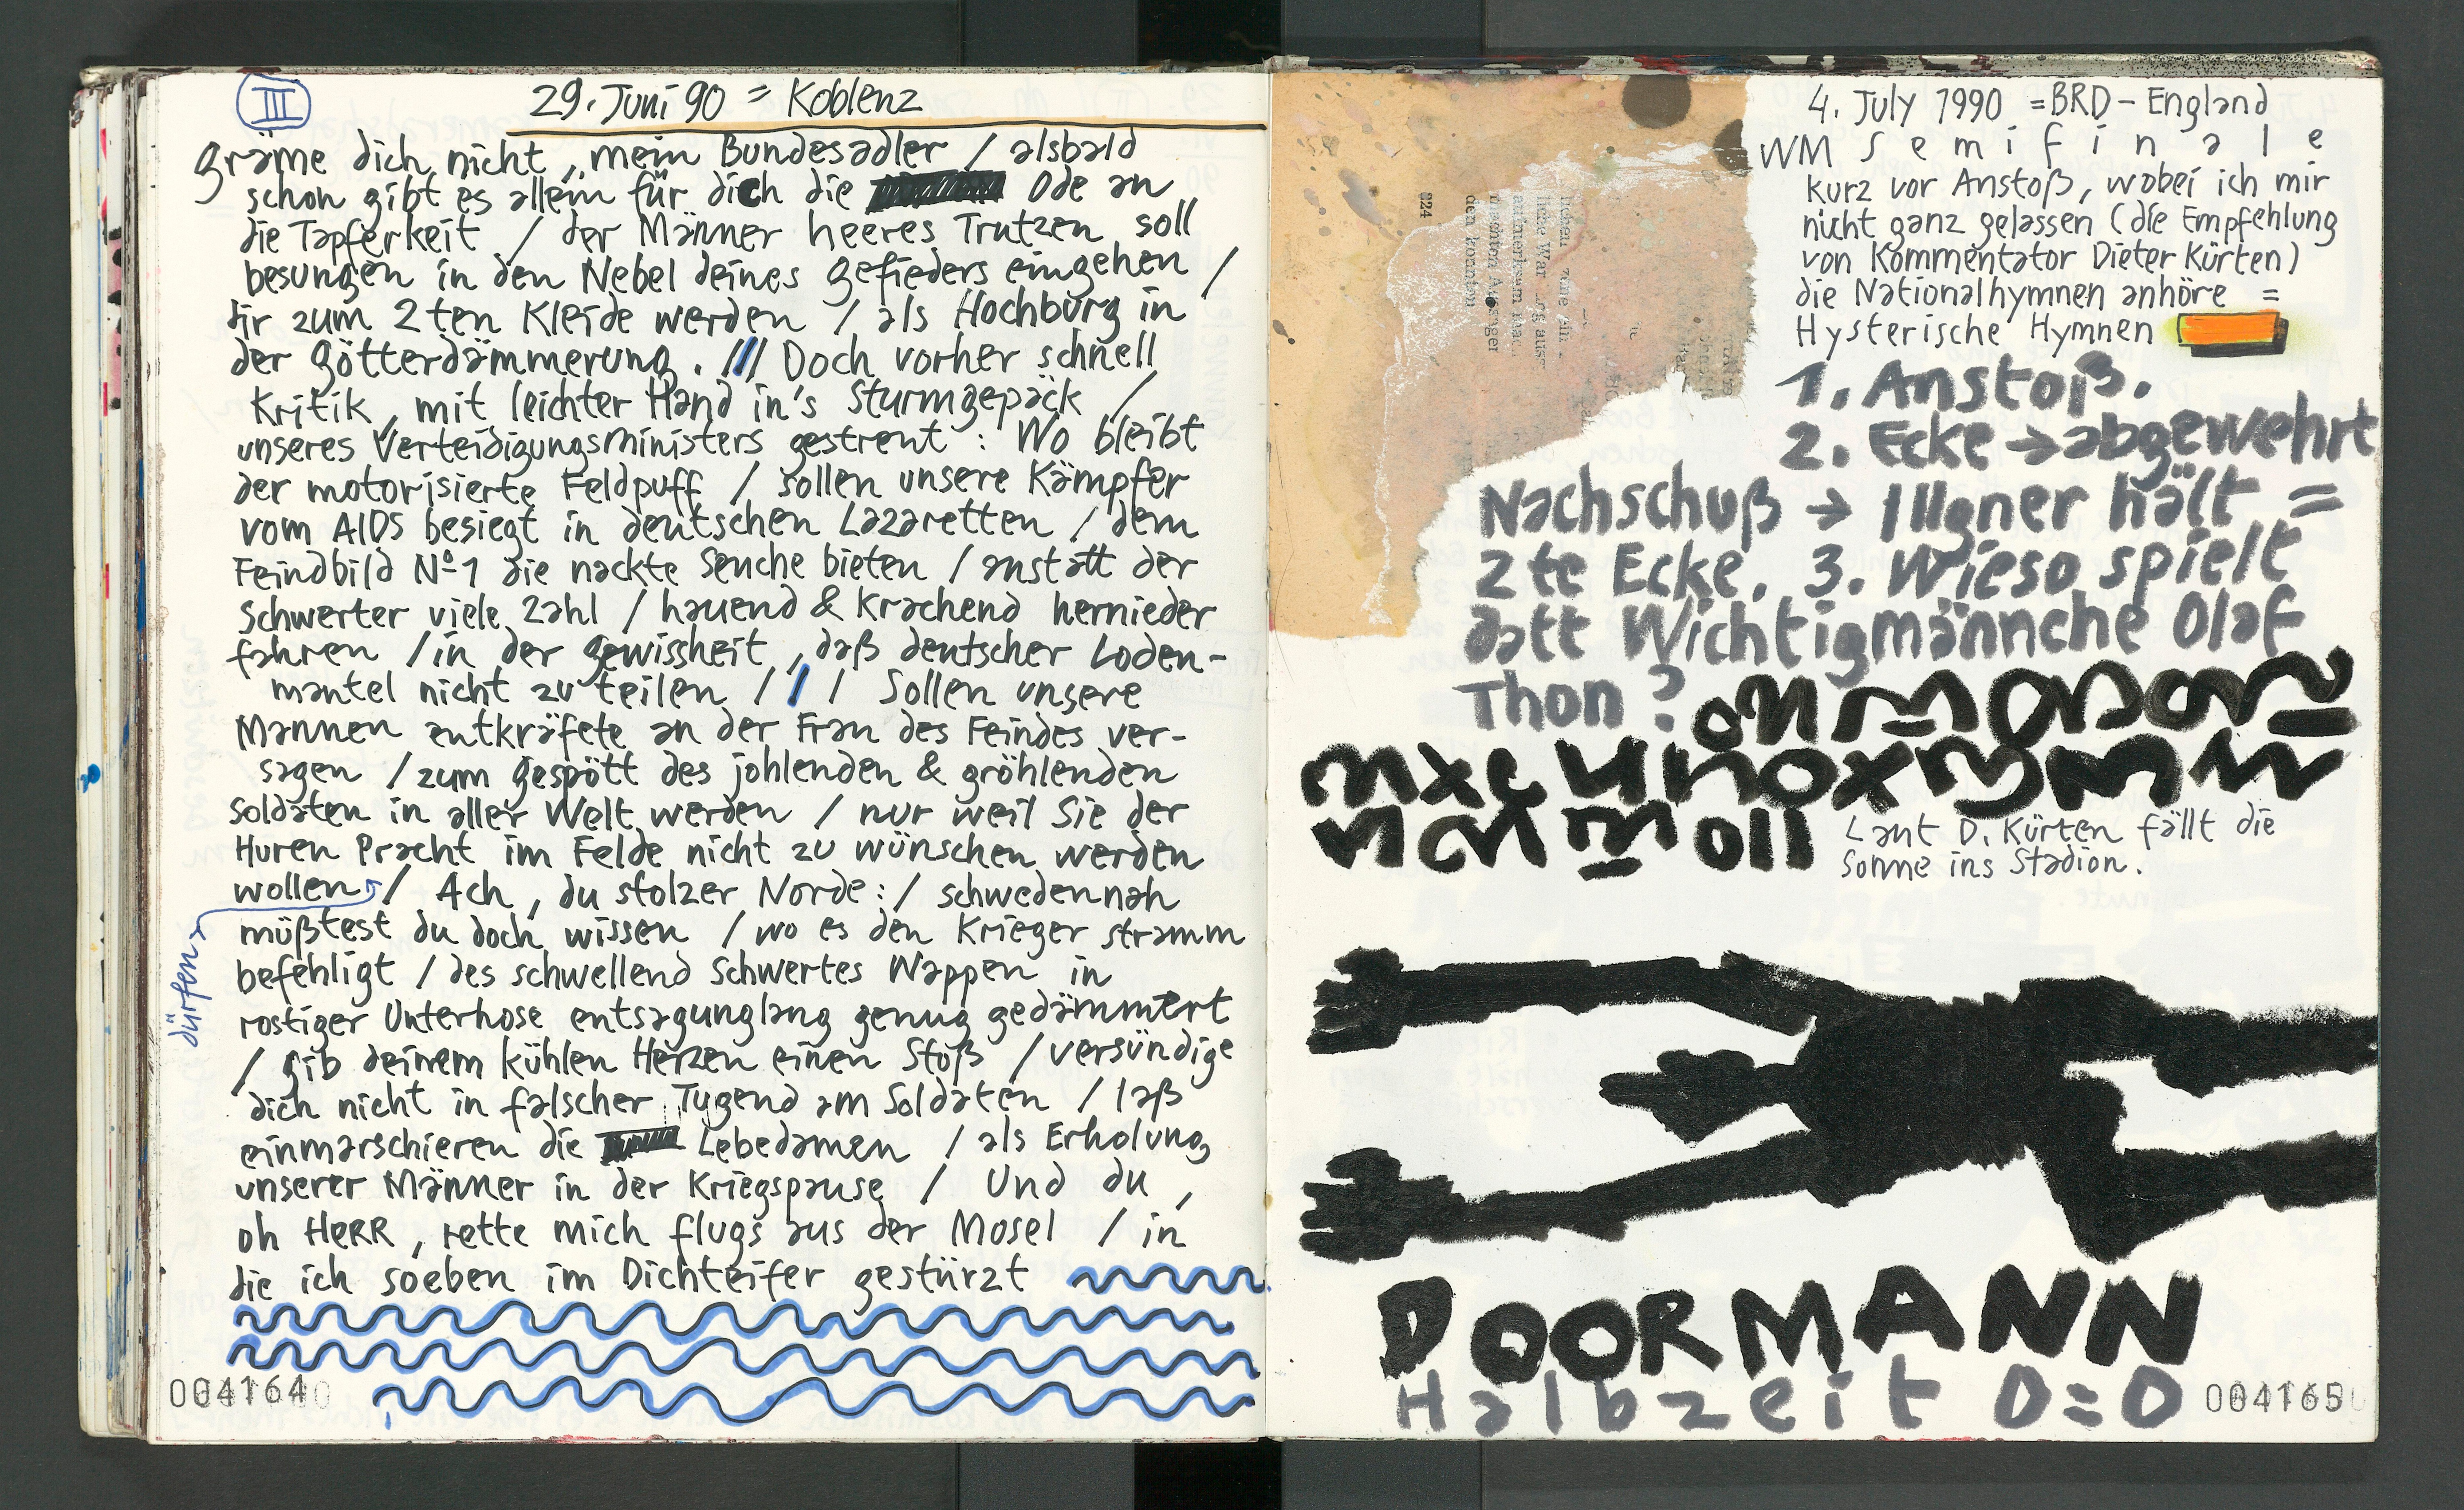 III
29. Juni 90 = Koblenz
gräme dich nicht, mein Bundesadler / alsbald
schon gibt es allein für dich die Ode an
die Tapferkeit / der Männer heeres Trutzen soll
besungen in den Nebel deines Gefieders eingehen /
dir zum 2ten Kleide werden / als Hochburg in
der Götterdämmerung. /// Doch vorher schnell
Kritik, mit leichter Hand in's Sturmgepäck /
unseres Verteidigungsministers gestreut: Wo bleibt
der motorisierte Feldpuff / sollen unsere Kämpfer
vom AIDS besiegt in deutschen Lazaretten / dem
Feindbild Nº1 die nackte Seuche bieten / anstatt der
Schwerter viele Zahl / hauend & Krachend hernieder
fahren / in der Gewissheit, daß deutscher Loden-
mantel nicht zu teilen / / / Sollen unsere
Mannen entkräfete an der Frau des Feindes ver-
sagen / zum Gespött des johlenden & gröhlenden
Soldaten in aller Welt werden / nur weil Sie der
Huren Pracht im Felde nicht zu wünschen werden
wollen / Ach, du stolzer Norde: / schwedennah
müßtest du doch wissen / wo es den Krieger stramm
befehligt / des schwellend Schwertes Wappen in
rostiger Unterhose entsagunglang genug gedämmert
/ gib deinem kühlen Herzen einen Stoß / versündige
dich nicht in falscher Tugend am Soldaten / laß
einmarschieren die Lebedamen / als Erholung
unserer Männer in der Kriegspause / Und du,
oh HERR, rette mich flugs aus der Mosel / in
die ich soeben im Dichteifer gestürzt
dürfen
004164
4. July 1990 = BRD - England
WM Semifinale
kurz vor Anstoß, wobei ich mir
nicht ganz gelassen (die Empfehlung
von Kommentator Dieter Kürten)
die Nationalhymnen anhöre =
Hysterische Hymnen
1. Anstoß.
2. Ecke → abgewehrt
Nachschuß → Illgner hält =
2te Ecke. 3. Wieso spielt
datt Wichtigmännche Olaf
Thon?
Laut D. Kürten fällt die
Sonne ins Stadion.
DOORMANN
Halbzeit 0=0
004165
824
den konnten